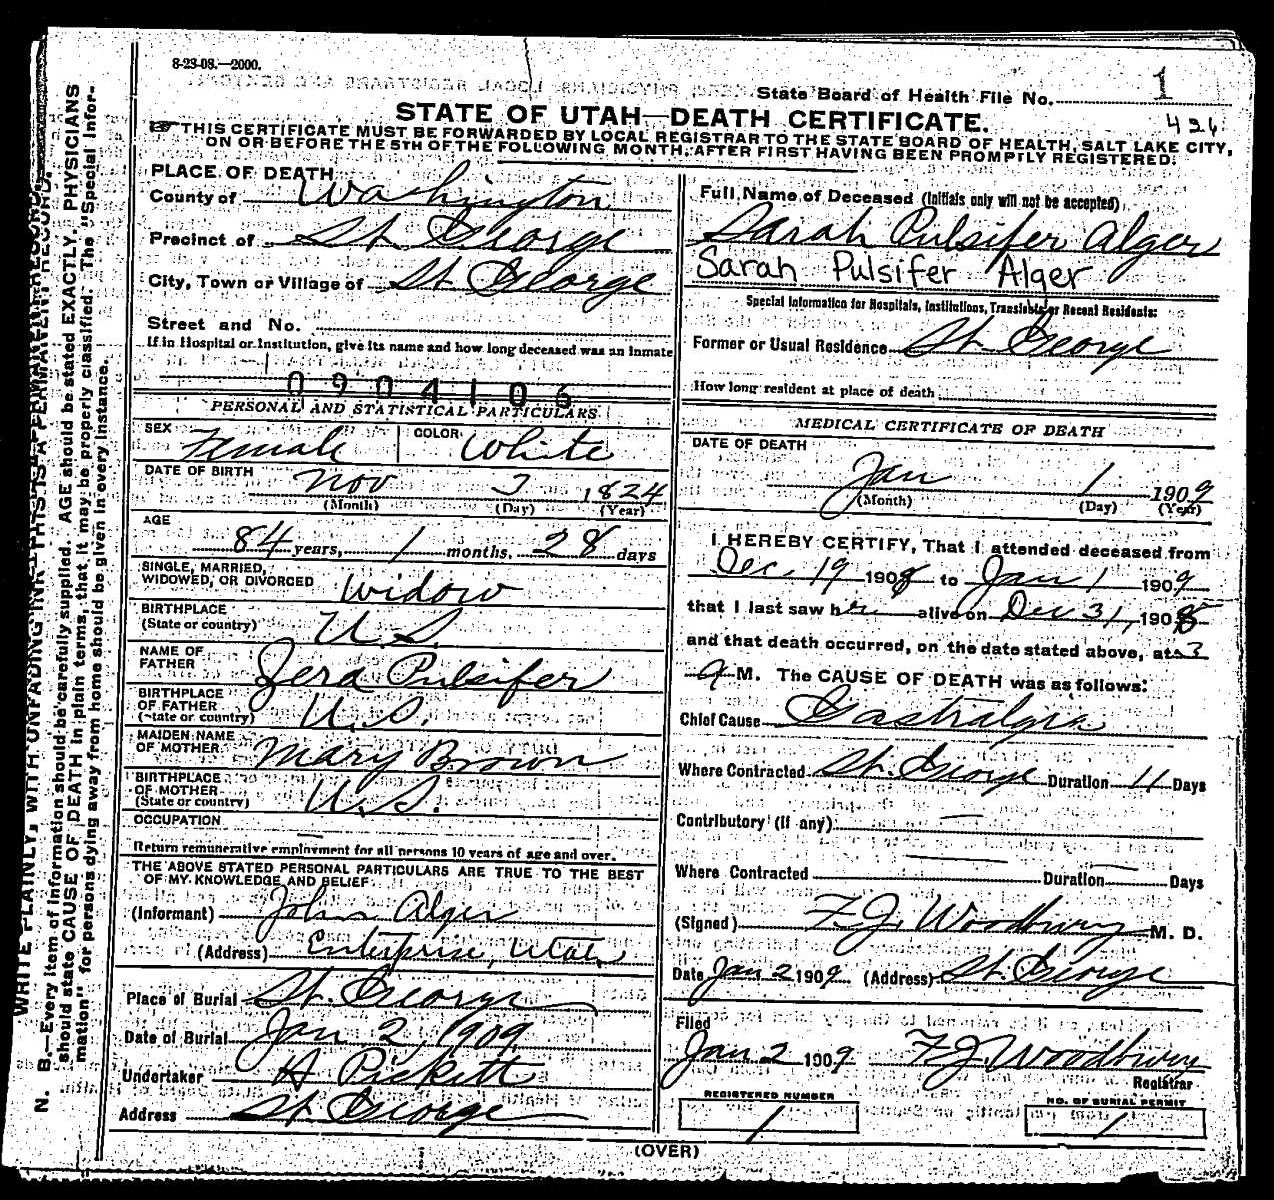 8-23-08.—2000.
State Board of Health File No. 1
426
STATE OF UTAH—DEATH CERTIFICATE.
☞ THIS CERTIFICATE MUST BE FORWARDED BY LOCAL REGISTRAR TO THE STATE BOARD OF HEALTH, SALT LAKE CITY,
ON OR BEFORE THE 5TH OF THE FOLLOWING MONTH, AFTER FIRST HAVING BEEN PROMPTLY REGISTERED.
PLACE OF DEATH
County of Washington
Precinct of St. George
City, Town or Village of St George
Street and No.
If in Hospital or Institution, give its name and how long deceased was an inmate
0904106
PERSONAL AND STATISTICAL PARTICULARS
SEX Female COLOR White
DATE OF BIRTH Nov 3 1824
(Month) (Day) (Year)
AGE
84 years, 1 months, 28 days
SINGLE, MARRIED,
WIDOWED, OR DIVORCED Widow
BIRTHPLACE
(State or country) U.S.
NAME OF
FATHER Zera Pulsifer
BIRTHPLACE
OF FATHER
(State or country) U.S.
MAIDEN NAME
OF MOTHER Mary Brown
BIRTHPLACE
OF MOTHER
(State or country) U.S.
OCCUPATION —
Return remunerative employment for all persons 10 years of age and over.
THE ABOVE STATED PERSONAL PARTICULARS ARE TRUE TO THE BEST
OF MY KNOWLEDGE AND BELIEF.
(Informant) John Alger
(Address) Enterprise, Utah
Place of Burial St. George
Date of Burial Jan 2, 1909
Undertaker A Pickett
Address St George
Full Name of Deceased (Initials only will not be accepted)
Sarah Pulsifer Alger
Sarah Pulsifer Alger
Special Information for Hospitals, Institutions, Transients or Recent Residents:
Former or Usual Residence St. George
How long resident at place of death
MEDICAL CERTIFICATE OF DEATH
DATE OF DEATH
Jan 1 1909
(Month) (Day) (Year)
I HEREBY CERTIFY, That I attended deceased from
Dec 19 1908 to Jan 1 1909
that I last saw her alive on Dec 31, 1908
and that death occurred, on the date stated above, at 3
A M. The CAUSE OF DEATH was as follows:
Chief Cause Gastralgia
Where Contracted St. George Duration 11 Days
Contributory (if any) —
Where Contracted — Duration — Days
(Signed) F.J. Woodbury M. D.
Date Jan 2 1909 (Address) St. George
Filed
Jan 2 1909 F.J. Woodbury
Registrar
REGISTERED NUMBER
1
NO. OF BURIAL PERMIT
1
(OVER)
WRITE PLAINLY, WITH UNFADING INK THIS IS A PERMANENT RECORD.
N. B.—Every item of information should be carefully supplied. AGE should be stated EXACTLY. PHYSICIANS
should state CAUSE OF DEATH in plain terms, that it may be properly classified. The "Special Infor-
mation" for persons dying away from home should be given in every instance.